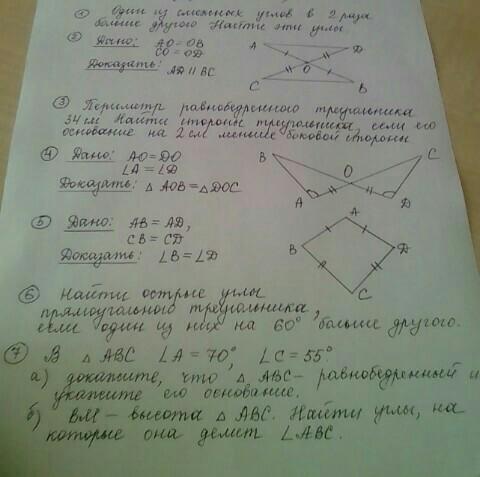 ① Один из смежных углов в 2 раза
больше другого Найти эти углы
② Дано: AO = OB
CO = OD
Доказать: AD || BC
A
D
O
C
B
③ Периметр равнобедренного треугольника
34 см Найти стороны треугольника, если его
основание на 2 см меньше боковой стороны
④ Дано: AO = DO
∠A = ∠D
Доказать: △ AOB = △ DOC
B
C
O
A
D
⑤ Дано: AB = AD,
CB = CD
Доказать: ∠B = ∠D
A
B
D
C
⑥ Найти острые углы
прямоугольного треугольника,
если один из них на 60° больше другого.
⑦ В △ ABC ∠A = 70°, ∠C = 55°
а) докажите, что △ ABC – равнобедренный и
укажите его основание.
б) BM – высота △ ABC. Найти углы, на
которые она делит ∠ABC.